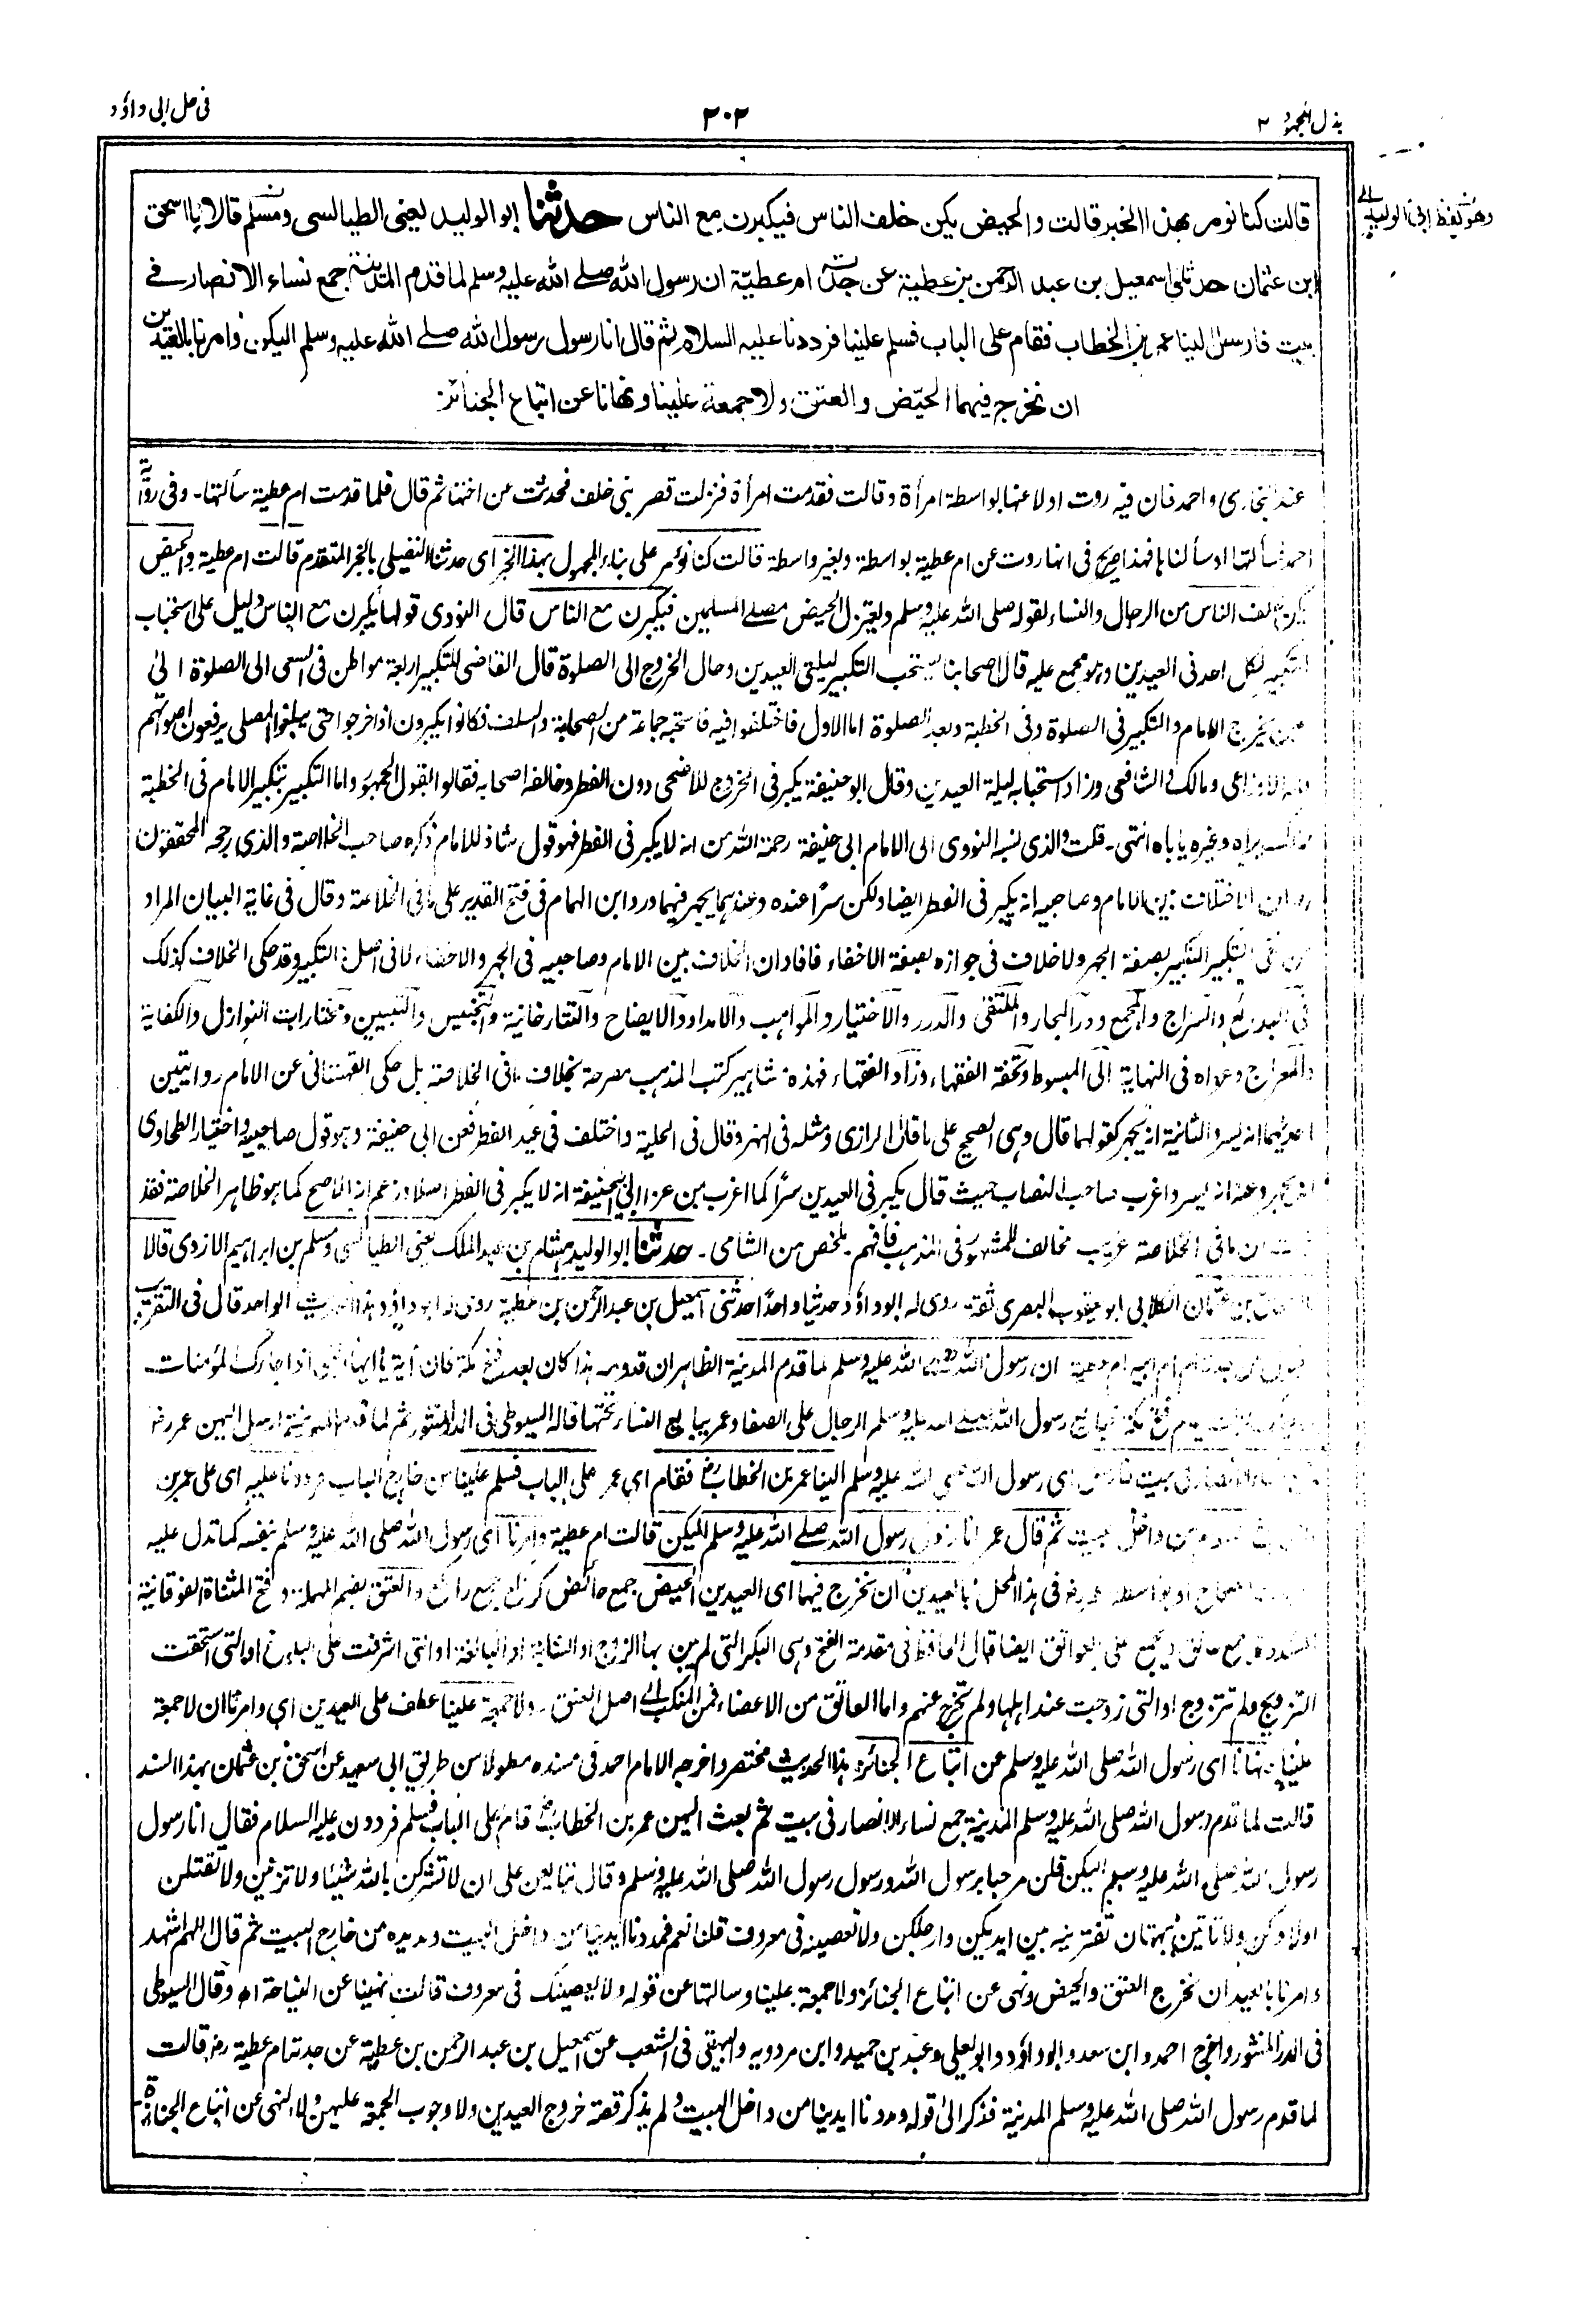 بذل المجهود ٢
٢٠٢
فى حل ابى داؤد
وهو لفظ ابى الوليد
قالت كنا نومر بهذا الخبر قالت والحيض يكن خلف الناس فيكبرن مع الناس حدثنا ابو الوليد يعنى الطيالسى ومسلم قالا نا اسحق
ابن عثمان حدثنى اسمعيل بن عبد الرحمن بن عطية عن جدته ام عطية ان رسول الله صلے الله عليه وسلم لما قدم المدينة جمع نساء الانصار فے
بيت فارسل الينا عمر بن الخطاب فقام على الباب فسلم علينا فرددنا عليه السلام ثم قال انا رسول رسول الله صلے الله عليه وسلم اليكن وامرنا بالعيدين
ان نخرج فيهما الحيّض والعتق ولا جمعة علينا ونهانا عن اتباع الجنائز
عند البخارى واحمد فان فيه روت اولا عنها بواسطة امرأة وقالت فقدمت امرأة فنزلت قصر بنى خلف فحدثت عن اختها ثم قال فلما قدمت ام عطية سألتها۔ وفى رواية
احمد فسألتها او سألناها فهذا صريح فى انها روت عن ام عطية بواسطة وبغير واسطة قالت كنا نؤمر على بناء المجهول بهذا الخبر اى حدثنا النفيلى بالخبر المتقدم قالت ام عطية والحيض
يكن خلف الناس من الرجال والنساء لقوله صلى الله عليه وسلم وليعتزل الحيض مصلے المسلمين فيكبرن مع الناس قال النووى قولها يكبرن مع الناس دليل على استحباب
التكبير لكل احد فى العيدين وهو مجمع عليه قال اصحابنا يستحب التكبير ليلتى العيدين وحال الخروج الى الصلوة قال القاضى للتكبير اربعة مواطن فى السعى الى الصلوة الى
حين يخرج الامام والتكبير فى الصلوة وفى الخطبة وبعد الصلوة اما الاول فاختلفوا فيه فاستحبه جماعة من الصحابة والسلف فكانوا يكبرون اذا خرجوا حتى يبلغوا المصلى يرفعون اصواتهم
وقاله الاوزاعى ومالك والشافعى وزاد استحبابه ليلة العيدين وقال ابو حنيفة يكبر فى الخروج للاضحى دون الفطر وخالفه اصحابه فقالوا بقول الجمهور واما التكبير بتكبير الامام فى الخطبة
فمالك يراه وغيره يأباه انتهى۔ قلت والذى نسبه النووى الى الامام ابى حنيفة رحمة الله من انه لا يكبر فى الفطر فهو قول شاذ للامام ذكره صاحب الخلاصة والذى رجحه المحققون
ان الاختلاف بين الامام وصاحبيه انه يكبر فى الفطر ايضا ولكن سرًّا عنده وعندهما يجهر فيهما ورد ابن الهمام فى فتح القدير على ما فى الخلاصة وقال فى غاية البيان المراد
من نفى التكبير التكبير بصفة الجهر ولا خلاف فى جوازه بصفة الاخفاء فافادان الخلاف بين الامام وصاحبيه فى الجهر والاخفاء لا فى اصل التكبير وقد حكى الخلاف كذلك
فى البدائع والسراج والمجمع ودرر البحار والملتقى والدرر والاختيار والمواهب والامداد والايضاح والتتارخانية والتجنيس والتبيين ومختارات النوازل والكفاية
والمعراج وعزاه فى النهاية الى المبسوط وتحفة الفقهاء وزاد الفقهاء فهذه مشاهير كتب المذهب مصرحة بخلاف ما فى الخلاصة بل حكى القهستانى عن الامام روايتين
احدىهما انه يسر والثانية انه يجهر كقولهما قال وهى الصحيح على ما قال الرازى ومثله فى النهر وقال فى الحلية واختلف فى عيد الفطر فعن ابى حنيفة وهو قول صاحبيه واختيار الطحاوى
انه يجهر وعنه انه يسر واغرب صاحب النصاب حيث قال يكبر فى العيدين سرًّا كما اغرب من عزا الى ابى حنيفة انه لا يكبر فى الفطر اصلا وزعم انه الاصح كما هو ظاهر الخلاصة فقد
ان ما فى الخلاصة غريب مخالف للمشهور فى المذهب فافهم۔ ملخص من الشامى۔ حدثنا ابو الوليد هشام بن عبد الملك يعنى الطيالسى ومسلم بن ابراهيم الازدى قالا
بن عثمان الكلابى ابو يعقوب البصرى ثقة روى له ابو داؤد حديثا واحدًا حدثنى اسمعيل بن عبد الرحمن بن عطية روى له ابو داؤد هذا الحديث الواحد قال فى التقريب
ام عطية ان رسول الله صلى الله عليه وسلم لما قدم المدينة الظاهر ان قدومه هذا كان بعد فتح مكة فان آية يا ايها النبى اذا جاءك المؤمنات
يوم فتح مكة فبايع رسول الله صلے الله عليه وسلم الرجال على الصفا وعمر يبايع النساء تحتها قاله السيوطى فى الدر المنثور ثم لما قدم المدينة ارسل اليهن عمر رضه
فى بيت فارسل اى رسول الله صلى الله عليه وسلم الينا عمر بن الخطاب رضه فقام اى عمر على الباب فسلم علينا من خارج الباب فرددنا عليه اى على عمر بن
من داخل البيت ثم قال عمر انا رسول رسول الله صلے الله عليه وسلم اليكن قالت ام عطية وامرنا اى رسول الله صلى الله عليه وسلم بنفسه كما تدل عليه
او بواسطة عمر رضه فى هذا المحل بالعيدين ان نخرج فيهما اى العيدين الحيض جمع حائض كركع جمع راكع والعتق بضم المهملة وفتح المثناة الفوقانية
المشددة جمع عاتق ويجمع على العواتق ايضا قال الحافظ فى مقدمة الفتح وهى البكر التى لم يبن بها الزوج او الشابة او البالغة او التى اشرفت على البلوغ او التى استحقت
التزويج ولم تتزوج او التى زوجت عند اهلها ولم تخرج عنهم واما العاتق من الاعضاء فمن المنكب الى اصل العنق۔ ولا جمعة علينا عطف على العيدين اى وامرنا ان لا جمعة
علينا ونهانا اى رسول الله صلى الله عليه وسلم عن اتباع الجنائز هذا الحديث مختصر واخرجه الامام احمد فى مسنده مطولا من طريق ابى سعيد عن اسحق بن عثمان بهذا السند
قالت لما قدم رسول الله صلى الله عليه وسلم المدينة جمع نساء الانصار فى بيت ثم بعث اليهن عمر بن الخطاب رضه قام على الباب فسلم فرددن عليه السلام فقال انا رسول
رسول الله صلى الله عليه وسلم اليكن قلن مرحبا برسول الله ورسول رسول الله صلى الله عليه وسلم وقال تبايعن على ان لا تشركن بالله شيئا ولا تزنين ولا تقتلن
اولادكن ولا تأتين ببهتان تفترينه بين ايديكن وارجلكن ولا تعصينه فى معروف قلنا نعم فمددنا ايدينا من داخل البيت ومد يده من خارج البيت ثم قال اللهم اشهد
وامرنا بالعيد ان نخرج العتق والحيض ونهى عن اتباع الجنائز ولا جمعة علينا وسألتها عن قوله ولا يعصينك فى معروف قالت نهينا عن النياحة اه وقال السيوطى
فى الدر المنثور واخرج احمد وابن سعد وابو داؤد وابو يعلى وعبد بن حميد وابن مردويه والبيهقى فى الشعب عن اسمعيل بن عبد الرحمن بن عطية عن جدته ام عطية رضه قالت
لما قدم رسول الله صلى الله عليه وسلم المدينة فذكر الى قوله ومددنا ايدينا من داخل البيت ولم يذكر قصة خروج العيدين ولا وجوب الجمعة عليهن ولا النهى عن اتباع الجنازة۔